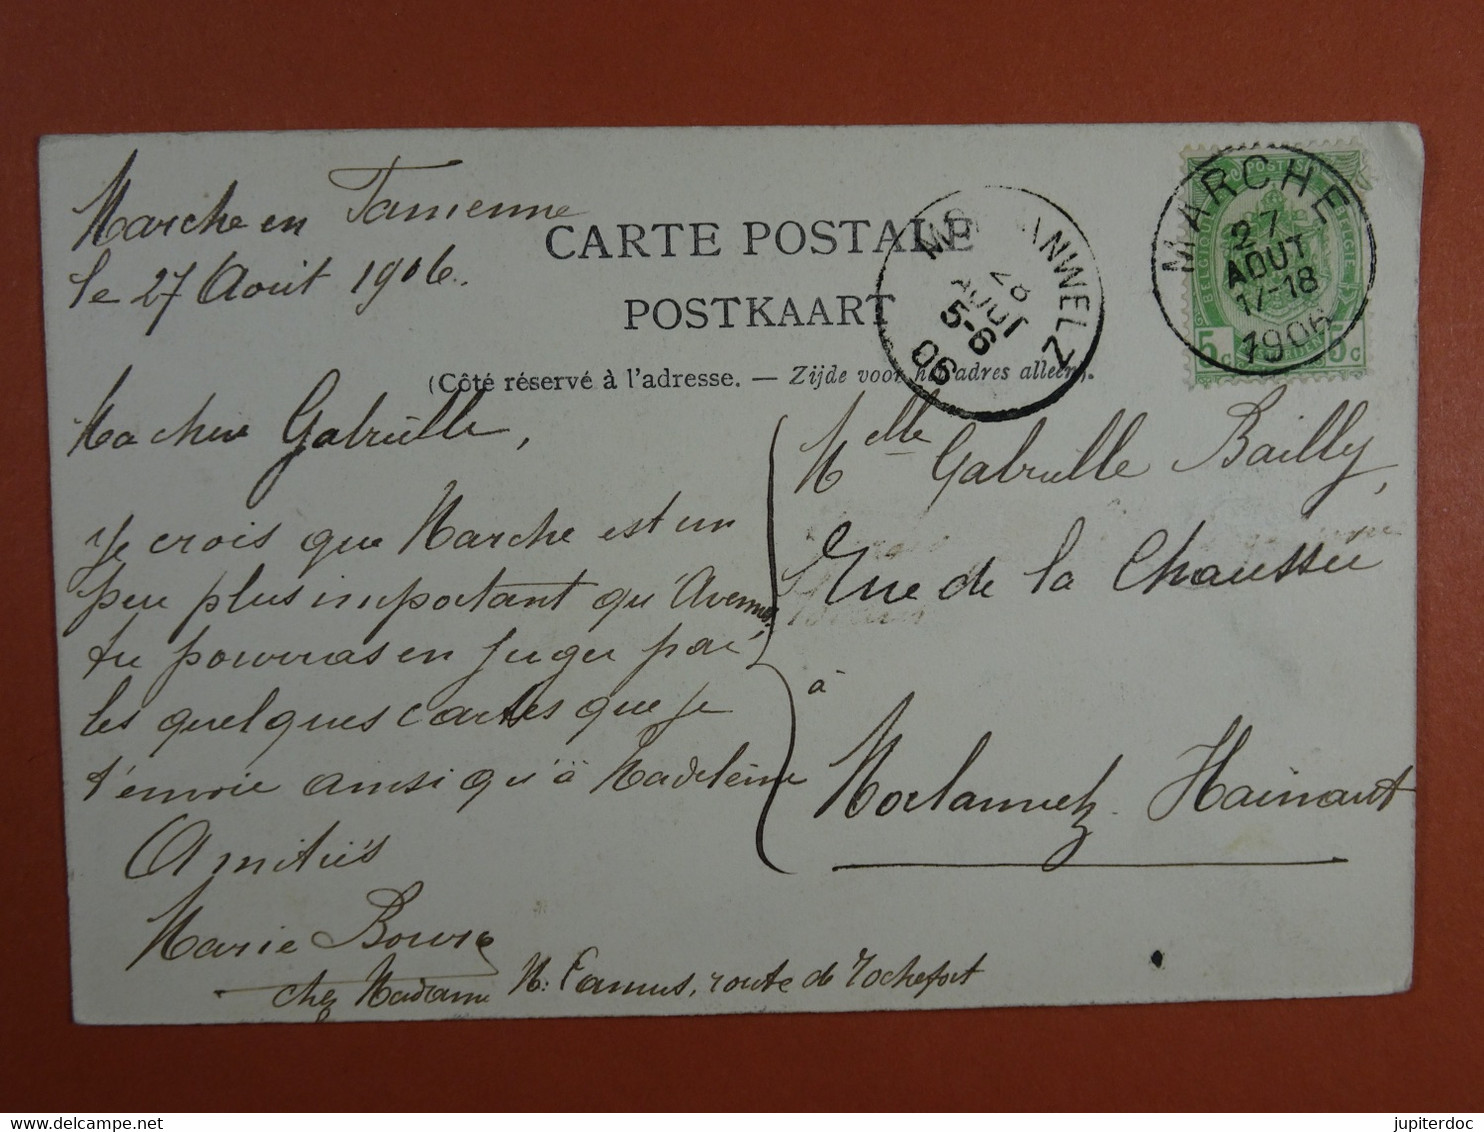 Marche en Famenne
le 27 Août 1906.
CARTE POSTALE
POSTKAART
(Côté réservé à l'adresse. — Zijde voor het adres alleen).
MARCHE
27
AOUT
17-18
1906
MORLANWELZ
28
AOUT
5-6
06
5c 5c
Ma chère Gabrielle,
Je crois que Marche est un
peu plus important qu'Avennes,
tu pourras en juger par
les quelques cartes que je
t'envoie ainsi qu'à Madeleine
Amitiés
Marie Bourg
chez Madame M: Camus, route de Rochefort
Melle Gabrielle Bailly,
Rue de la Chaussée
à
Morlanwelz. Hainaut
jupiterdoc
www.delcampe.net